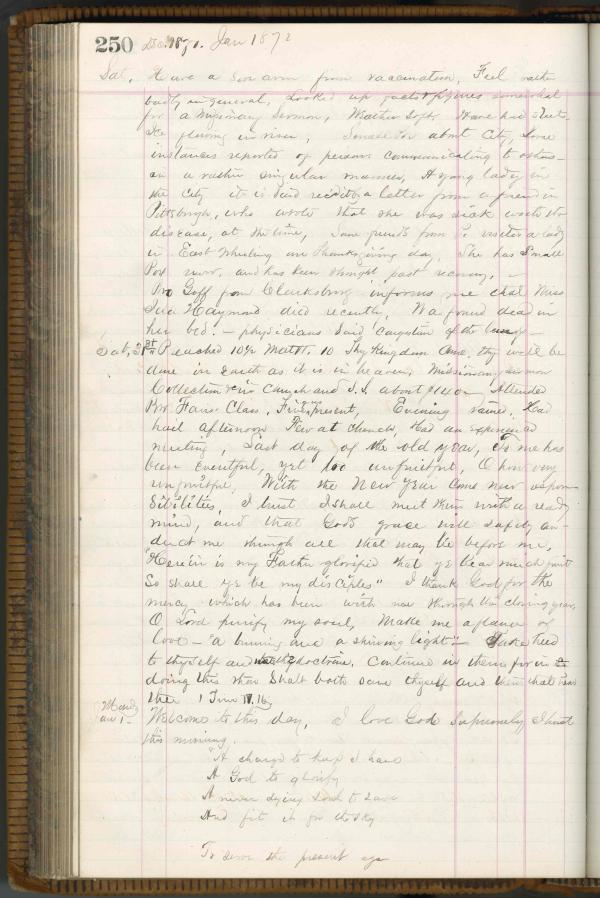 250 Dec. 1871. Jan 1872
Sat. Have a sore arm from vaccination, Feel rather
badly in general, Looked up facts & figures somewhat
for a Missionary Sermon, Weather Soft, Have had
Ice flowing in river, about City, Some
instances reported of persons communicating to others
in a rather singular manner, A young lady in
the City it is said recd a letter from a friend in
Pittsburgh, who wrote that she was sick with the
disease, at the time, Some friends from visited a lady
in East Wheeling on thanksgiving day, She has Small
Pox now, and has been thought past recovery, –
Bro Goff from Clarksburg informs me that Miss
Haymond died recently, Was found dead in
her bed. – physicians said congestion of the lungs –
Sab, 31st Preached 10½ Matt. 6. 10 Thy Kingdom Come, thy will be
done in Earth as it is in heaven, Missionary sermon
Collection in Church and S.S. about $140 Attended
Bro Class, Five present, Evening rained, Had
hail afternoon Few at Church, Had an experience
meeting, Last day of the old year, To me has
been eventful, yet too unfruitful, O how very
unfruitful, With the New Year come new respon
sibilities, I trust I shall meet them with a ready
mind, and that God's grace will safely con-
duct me through all that may be before me,
"Herein is my Father glorified that ye bear much fruit
So shall ye be my disciples" I thank God for the
mercy which has been with me through the closing year,
O Lord purify my soul, Make me a flame of
love – "a burning and a shining light" – Take heed
to thyself and doctrine, continue in them for in
doing this thou shalt both save thyself and them that hear
thee 1 Tim IV. 16
Mond Jan 1 – Welcome to this day, I love God supremely I trust
this morning.
"A charge to keep I have
A God to glorify
A never dying soul to save
And fit it for the sky
To serve the present age